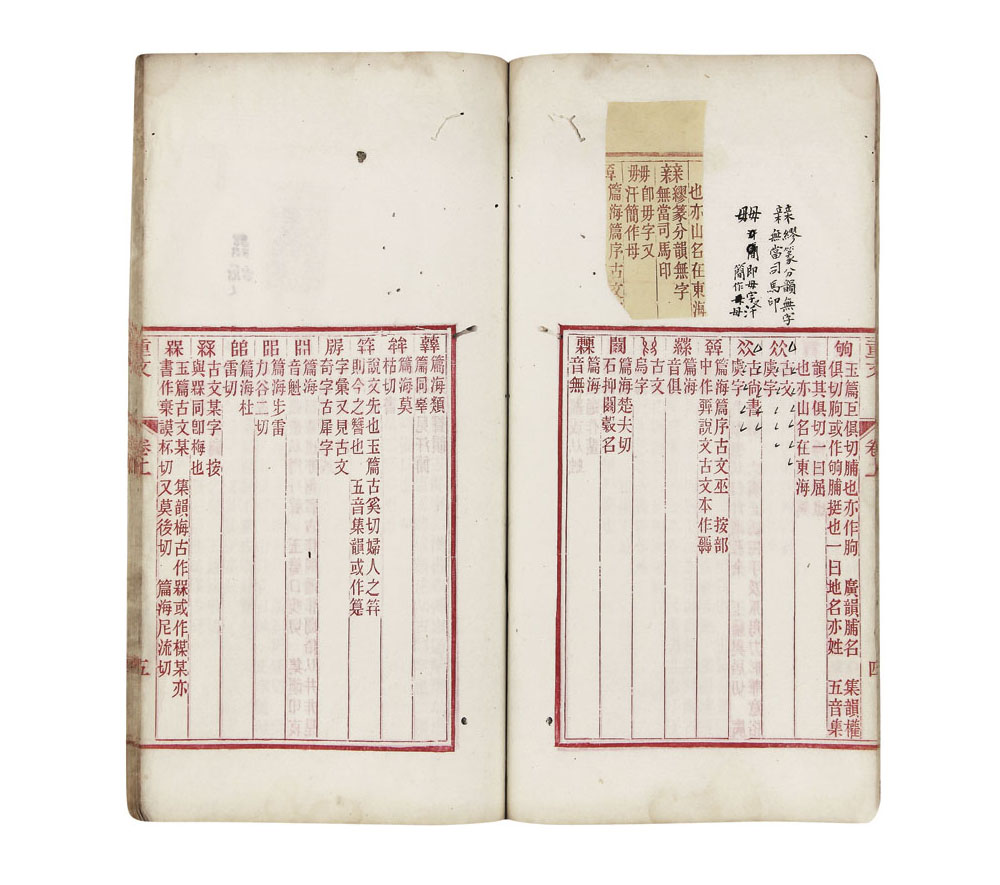 玉篇巨俱切脯也亦作朐 廣韻脯名 集韻權
俱切朐或作䐕脯挺也一曰地名亦姓 五音集
韻其俱切一曰屈
也亦山名在東海
古文
虞字
古尚書
虞字
篇海篇序古文巫 按部
中作𢍮說文古文本作𢍮
篇海
音俱
古文
烏字
篇海楚夫切
石抑闂轂名
篇海
音無
也亦山名在東海
繆篆分韻無字
無當司馬印
毋卽毋字又
毋汗簡作母
篇海篇序古文
繆篆分韻無字
無當司馬印
毋
即毋字汗
簡作毋母
卷上
四
篇海類
篇同辜
篇海莫
枯切
說文先也玉篇古奚切婦人之笄
則今之簪也 五音集韻或作筓
字彙又見古文
奇字古犀字
篇海
音魁
篇海步雷
力谷二切
篇海杜
雷切
古文某字 按
與槑同卽梅也
槑
玉篇古文某 集韻梅古作槑或作楳某亦
書作䒫謨杯切又莫後切 篇海尼流切
重文
卷上
五